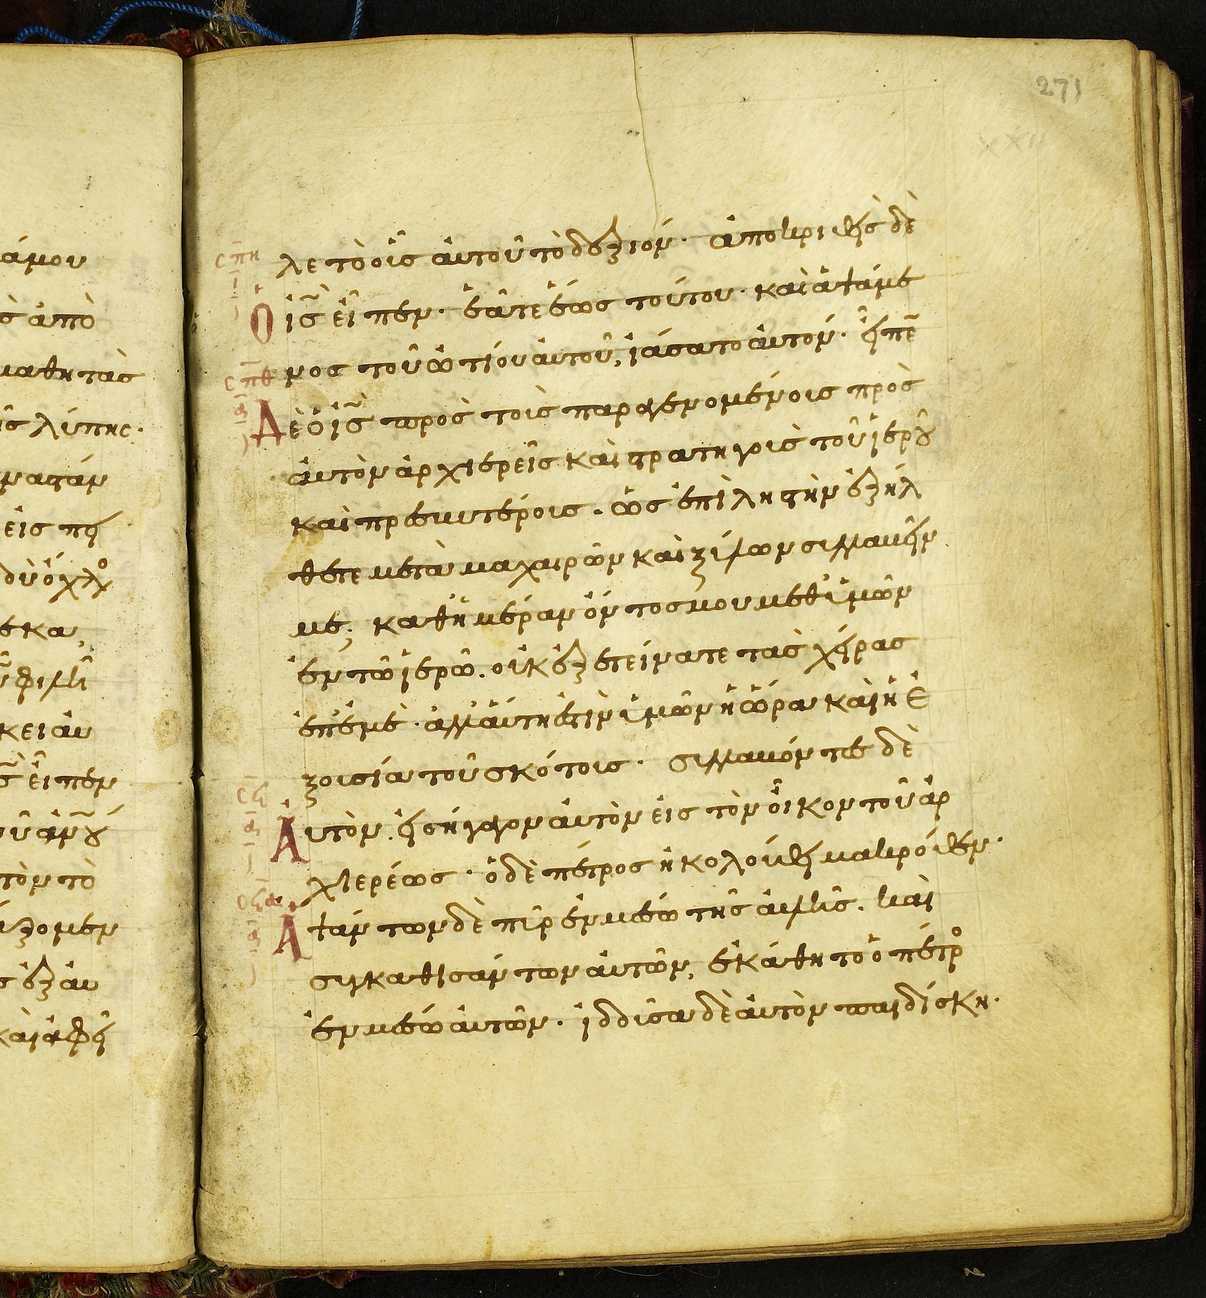 271
λε τὸ οὖς αὐτοῦ τὸ δεξιόν· ἀποκριθεὶς δὲ
Ὁ ις̄ εἶπεν· ἐᾶτε ἕως τούτου· καὶ ἁψάμε
νος τοῦ ὠτίου αὐτοῦ, ἰάσατο αὐτόν· εἶπε̄
Δὲ ὁ ις̄ πρὸς τοὺς παραγενομένους πρὸς
αὐτὸν ἀρχιερεῖς καὶ στρατηγοὺς τοῦ ἱεροῦ
καὶ πρεσβυτέρους· ὡς ἐπὶ ληστὴν ἐξήλ
θετε μετὰ μαχαιρῶν καὶ ξύλων συλλαβεῖν
με; καθ' ἡμέραν ὄντος μου μεθ' ὑμῶν
ἐν τῷ ἱερῷ. οὐκ ἐξετείνατε τὰς χεῖρας
ἐπ' ἐμὲ· ἀλλ' αὕτη ἐστὶν ὑμῶν ἡ ὥρα καὶ ἡ ἐ
ξουσία τοῦ σκότους· συλλαβόντες δὲ
Αὐτὸν. εἰσήγαγον αὐτὸν εἰς τὸν οἶκον τοῦ ἀρ
χιερέως· ὁ δὲ πέτρος ἠκολούθει μακρόθεν·
Ἁψάντων δὲ πῦρ ἐν μέσω τῆς αὐλῆς. καὶ
συγκαθισάντων αὐτῶν, ἐκάθητο ὁ πέτρο
ἐν μέσω αὐτῶν· ἰδοῦσα δὲ αὐτὸν παιδίσκη·
άμου
ς ἀπὸ
μαθητὰς
ῆς λύπης·
κειαυ
ς̄ εἶπεν
τὸν τὸ